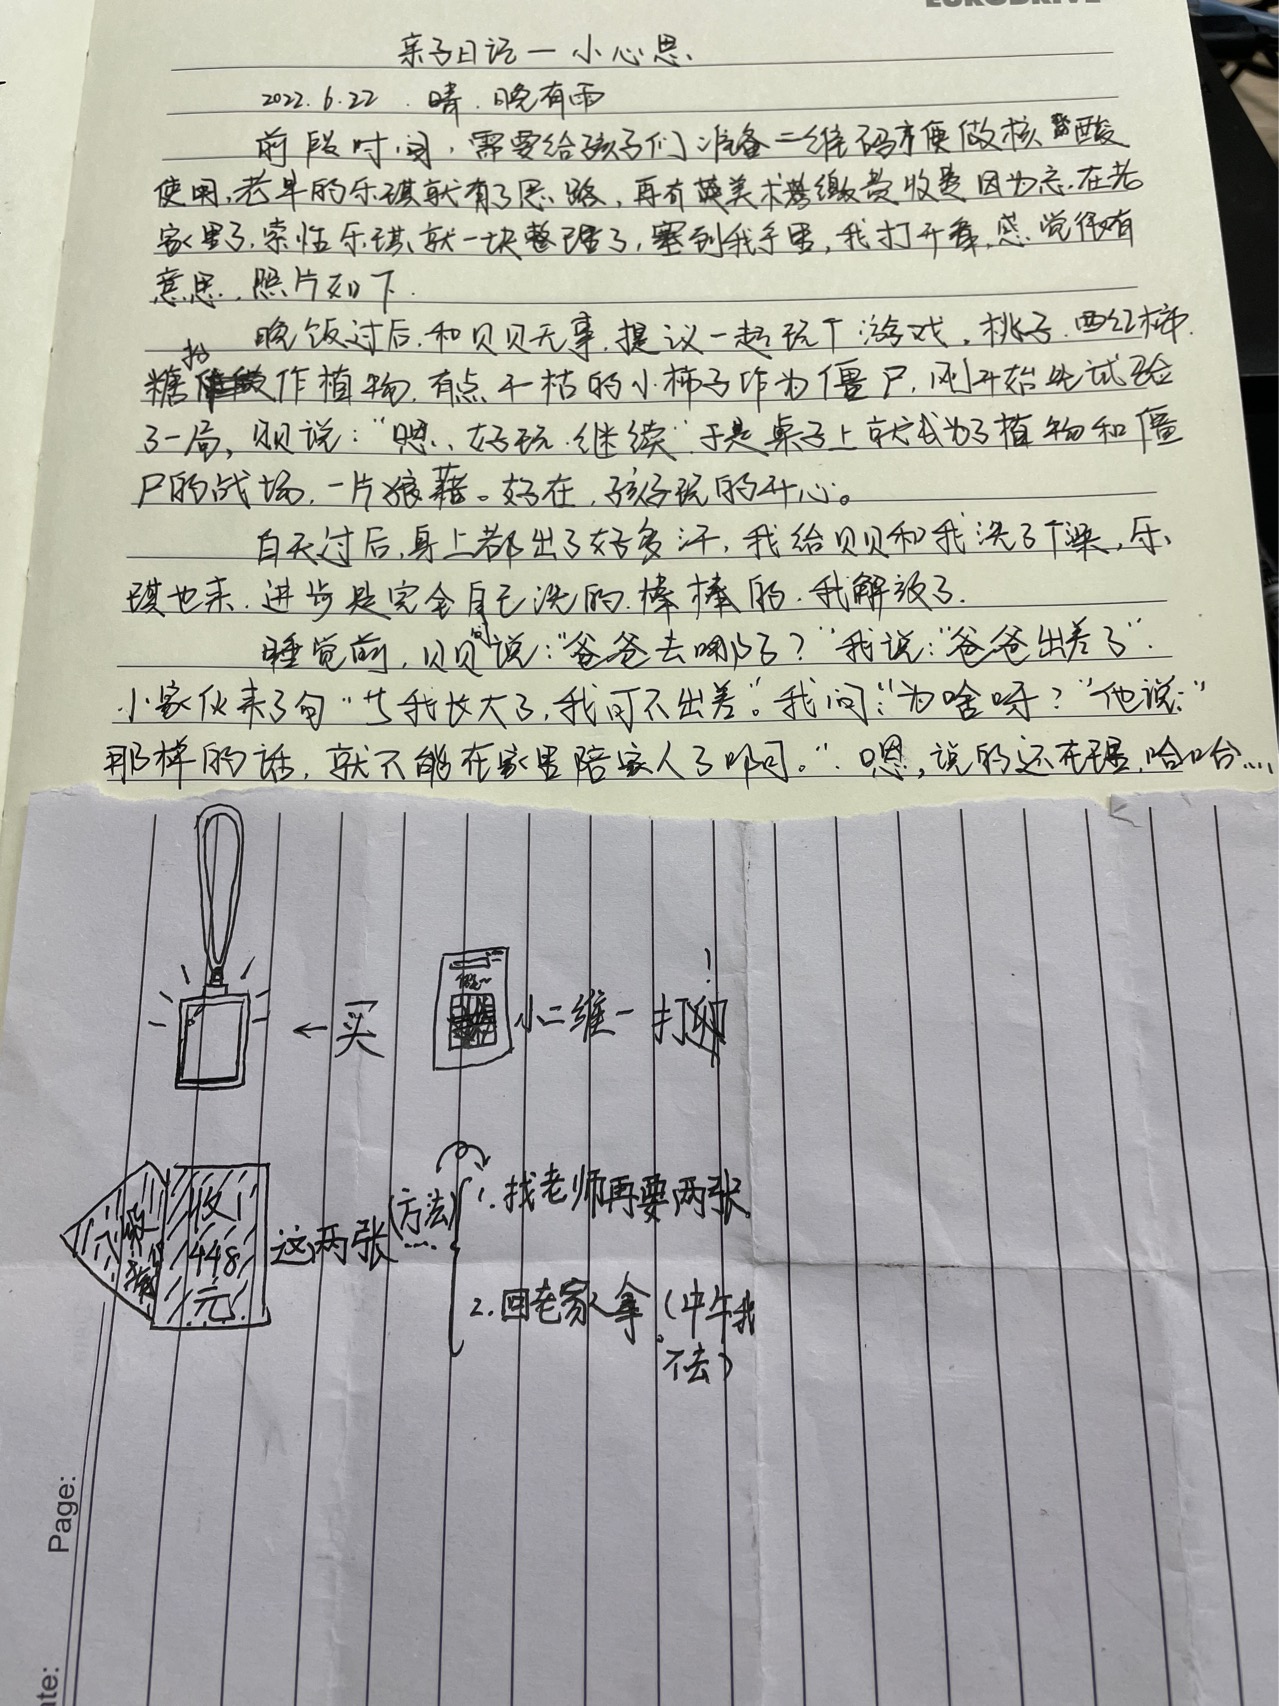 EURODRIVE
亲子日记一小心思.
2022.6.22.晴.晚有雨
前段时间,需要给孩子们准备二维码方便做核酸
使用,老早的乐琪就有了思路,再有 美术 缴费收 因为忘在老
家里了,索性乐琪就一块整理了,塞到我手里,我打开看,感觉很有
意思.照片如下.
晚饭过后.和贝贝无事,提议一起玩个游戏,桃子.西红柿.
糖扮作植物,有点干枯的小柿子作为僵尸,刚开始先试验
了一局,贝贝说:“嗯、好玩.继续”于是桌子上就成为了植物和僵
尸的战场,一片狼藉。好在,孩子玩的开心。
白天过后,身上都出了好多汗,我给贝贝和我洗了个澡,乐
琪也来.进步是完全自己洗的.棒棒的.我解放了.
睡觉前,贝贝问说:“爸爸去哪了?”我说:“爸爸出差了”.
小家伙来了句“等我长大了,我可不出差”。我问:“为啥呀?”他说:“
那样的话,就不能在家里陪家人了啊。”.嗯,说的还在理,哈哈....
←买
小二维一打印!
收
448
元
这两张(方法)
1.找老师再要两张.
2.回老家拿(中午我
不去)
Page: